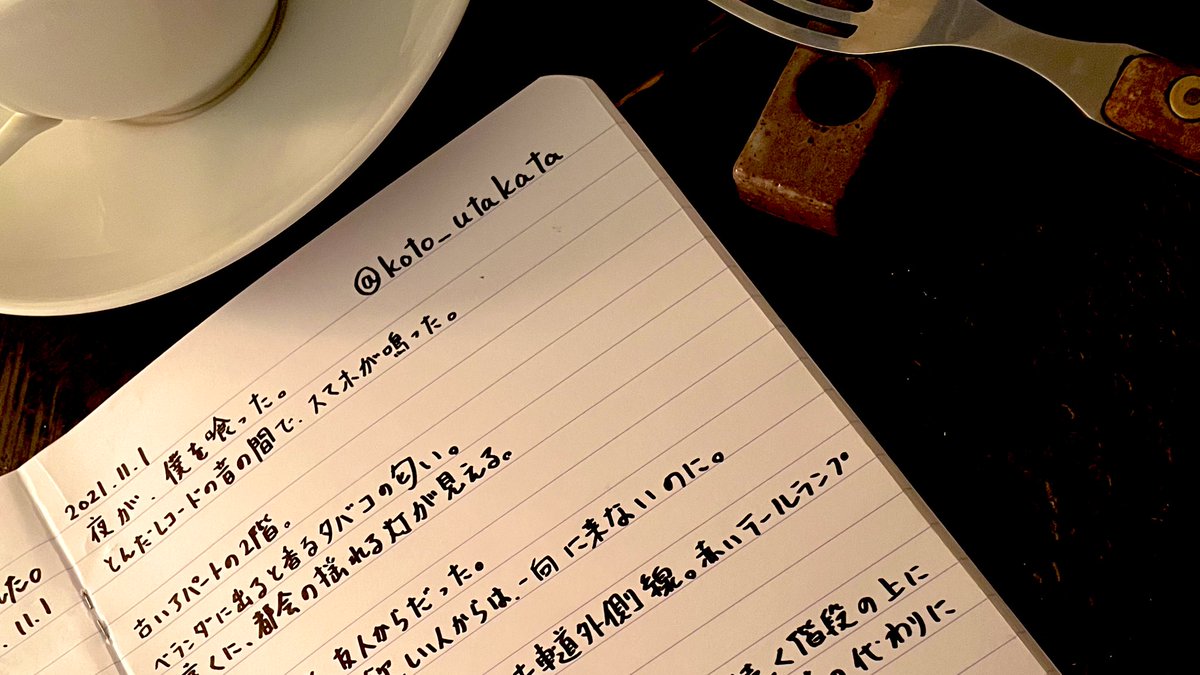 @koto_utakata
2021.11.1
夜が、僕を喰った。
とんだレコードの音の間で、スマホが鳴った。
古いアパートの2階。
ベランダに出ると香るタバコの匂い。
くに、都会の揺れる灯が見える。
友人からだった。
しい人からは、一向に来ないのに。
車道外側線。赤いテールランプ
く階段の上に
の代わりに
た。
.11.1